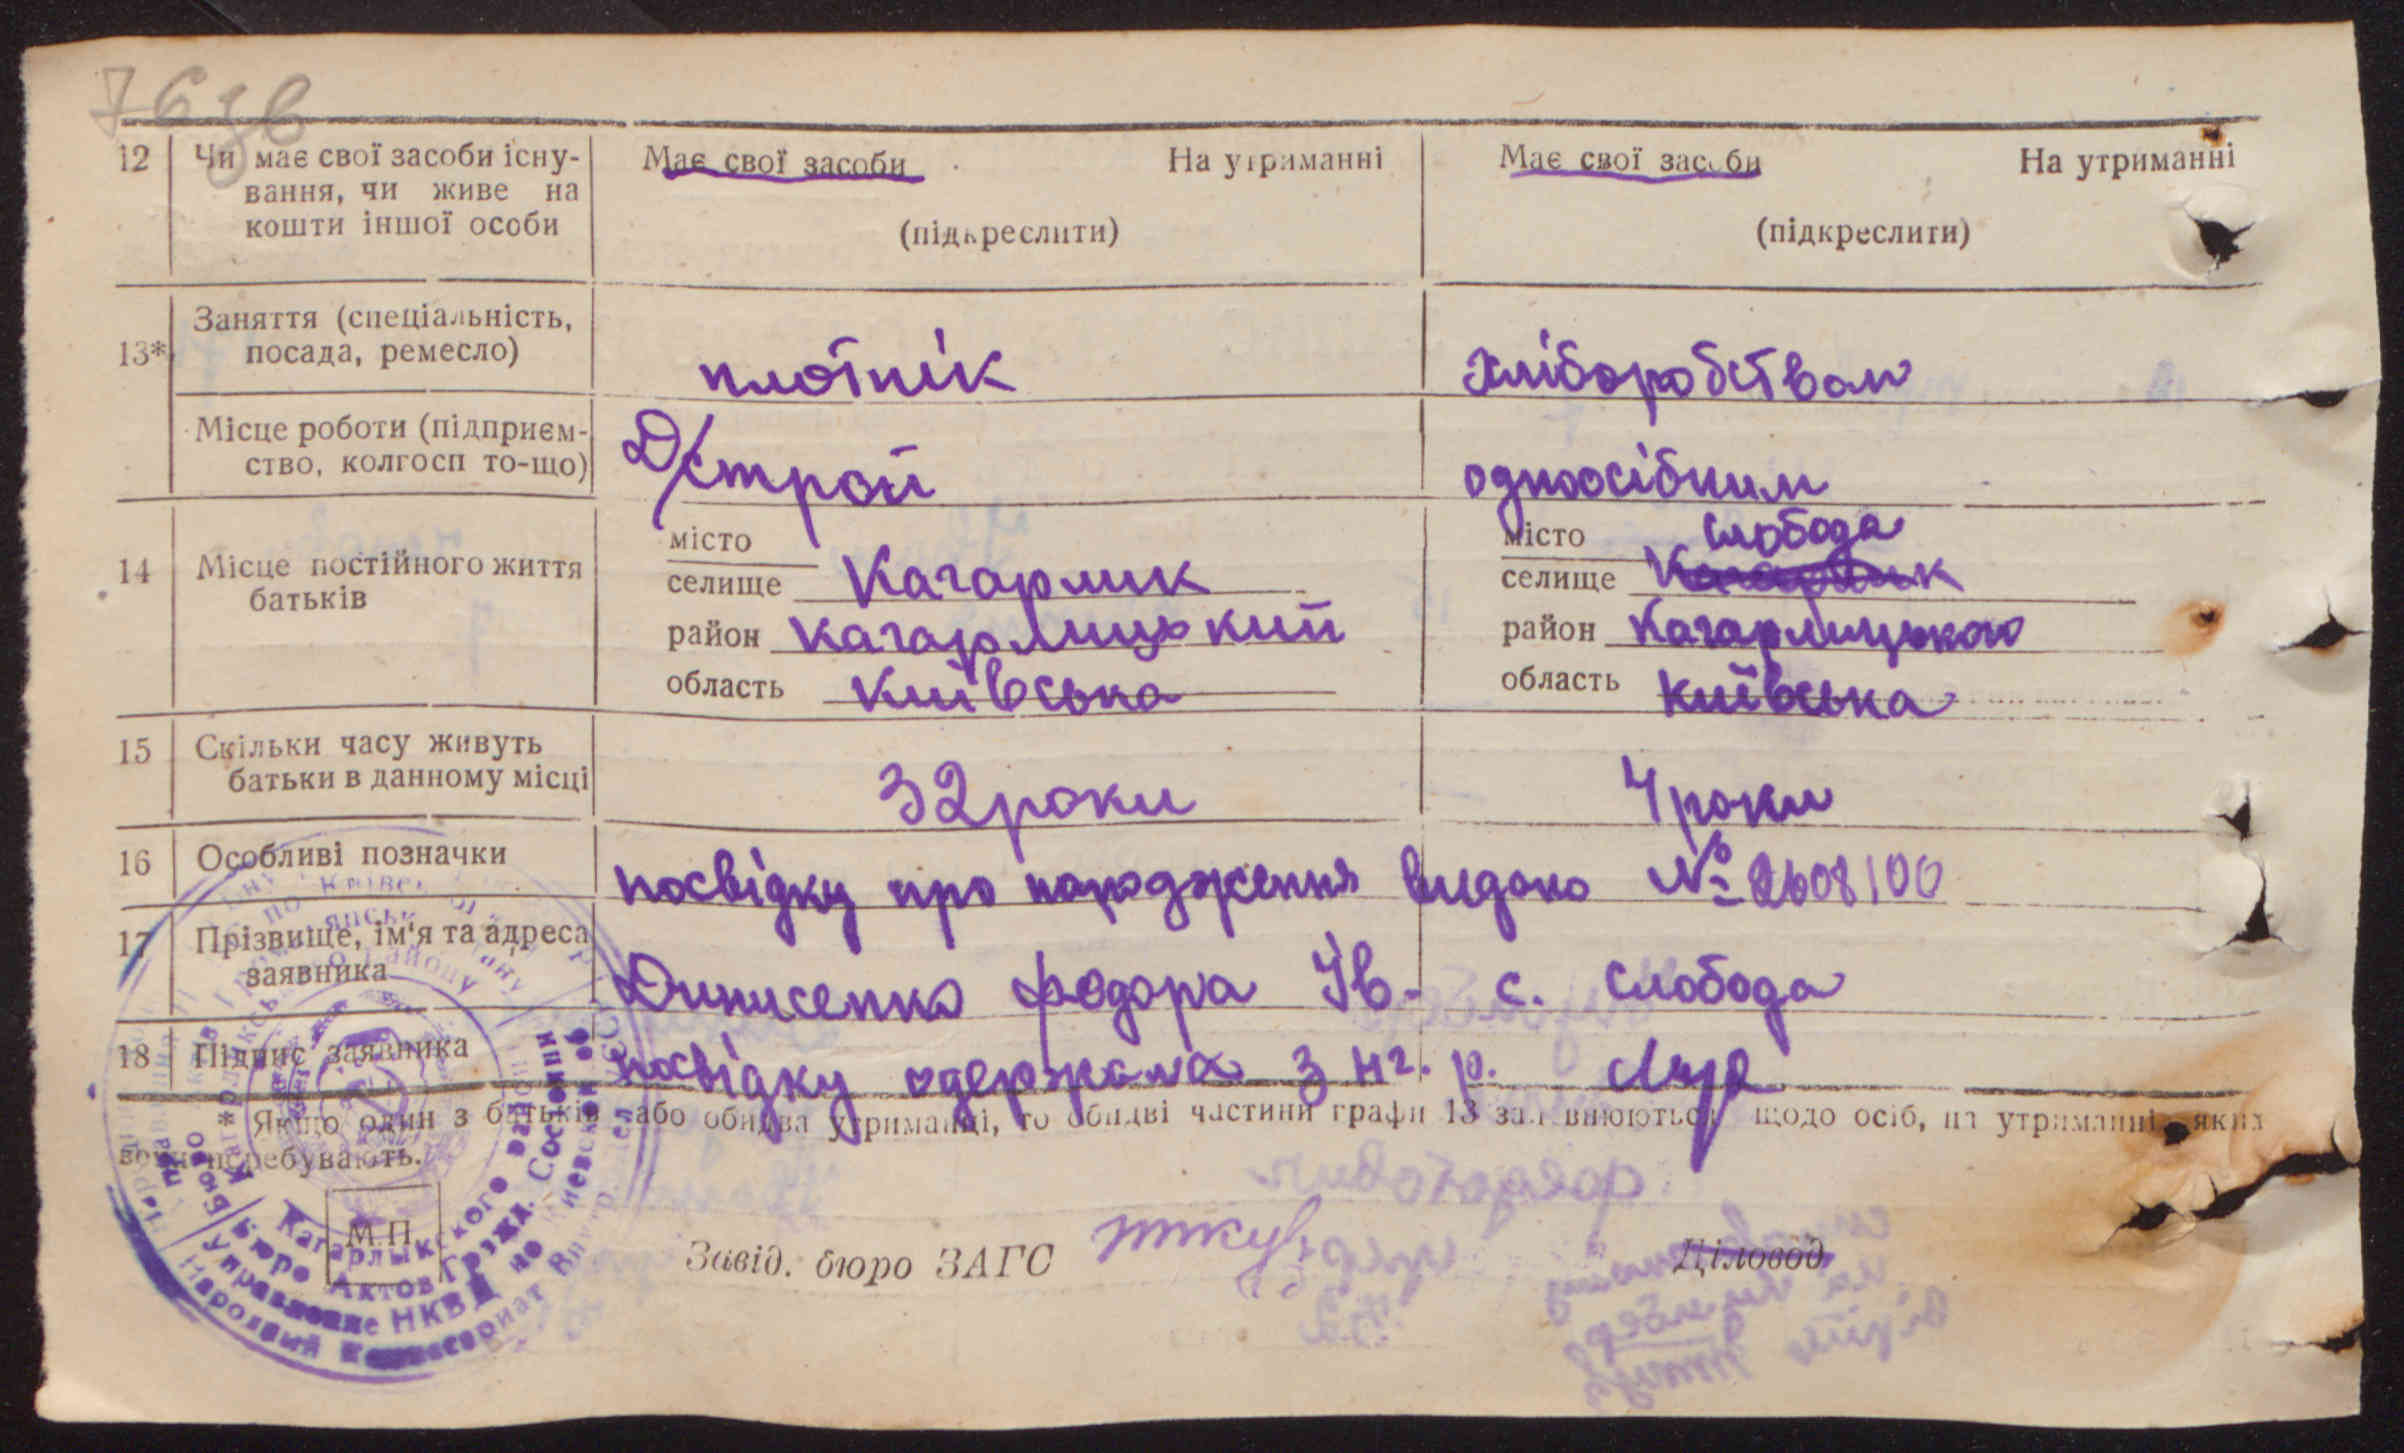 76 зв
12 Чи має свої засоби існу- Має свої засоби На утриманні Має свої засоби На утриманні
вання, чи живе на
кошти іншої особи (підкреслити) (підкреслити)
Заняття (спеціальність,
13* посада, ремесло) плотнік хліборобством
Місце роботи (підприєм-
ство, колгосп то-що) Д/строй одноосібним
місто місто слобода
14 Місце постійного життя селище Кагарлик селище Кагарлик
батьків
район кагарлицький район Кагарлицького
область київська область київська
15 Скільки часу живуть
батьки в данному місці 32 роки 4 роки
16 Особливі позначки посвідку про народження видано № 2608100
17 Прізвище, ім'я та адреса
заявника Динисенко Федора Ів. с. слобода
18 Підпис заявника посвідку одержала з нг. р.
* Якщо один з батьків або обидва утриманці, то обидві частини графи 13 заповнюються щодо осіб, на утриманні яких
вони перебувають.
М.П.
Завід. бюро ЗАГС Діловод
Кагарлыкского района
Бюро Актов Гражд. Состояния
Управление НКВД по Киевской об
Народный Комиссариат Внутр. Дел УССР